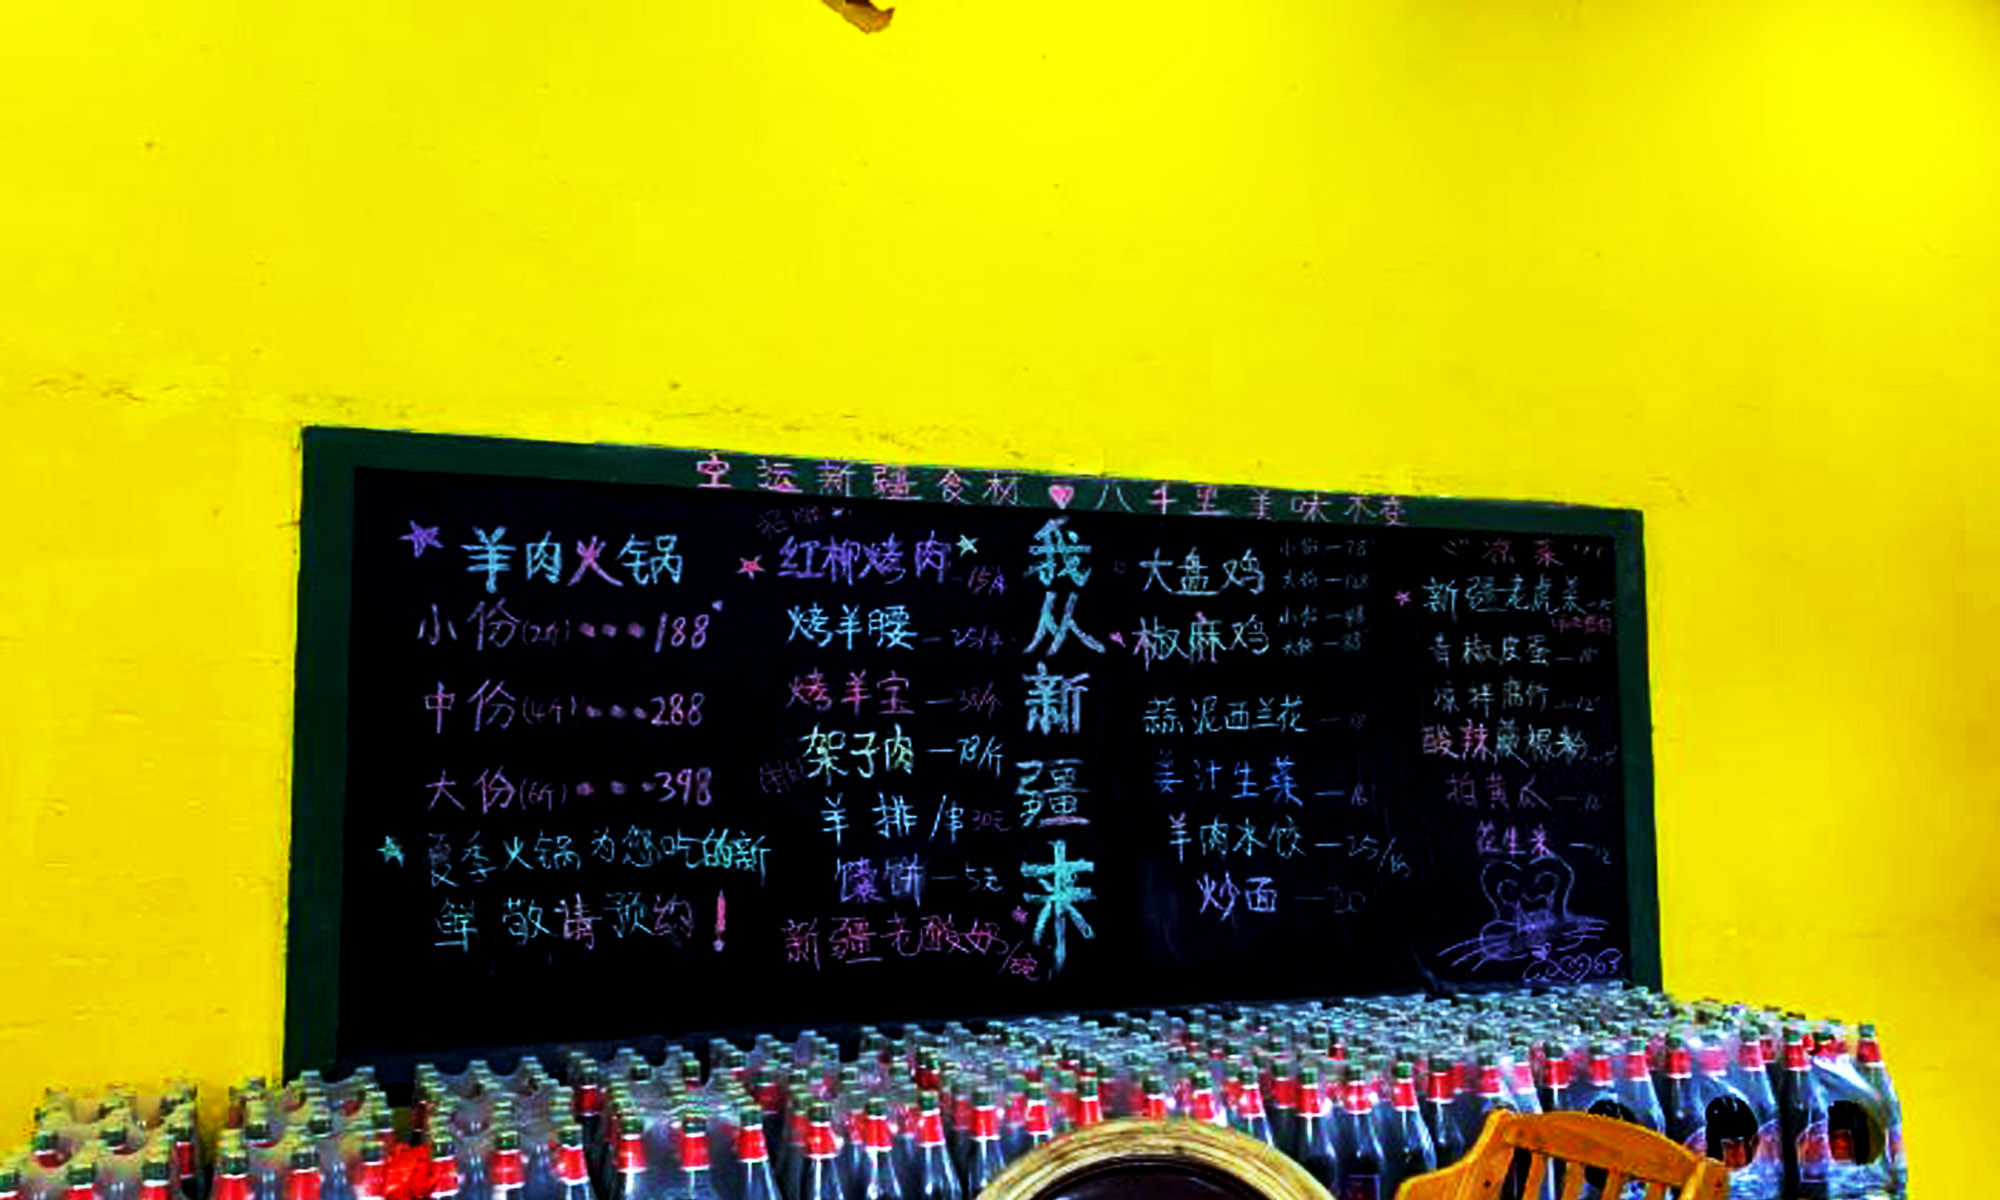 空运新疆食材♥八千里美味不变
羊肉火锅
小份(2斤)•••188
中份(4斤)•••288
大份(6斤)•••398
夏季火锅为您吃的新
鲜 敬请预约!
招牌
红柳烤肉-15/串
烤羊腰-25/串
烤羊宝-38/个
架子肉-78/斤
羊排/串30元
馕饼-5元
新疆老酸奶/碗
我从新疆来
大盘鸡 小份-78
大份-128
椒麻鸡 小份-48
大份-88
蒜泥西兰花-18
姜汁生菜-16
羊肉水饺-25/份
炒面-20
凉菜
新疆老虎菜
青椒皮蛋-18
凉拌腐竹-12
酸辣蕨根粉
拍黄瓜-12
花生米-12